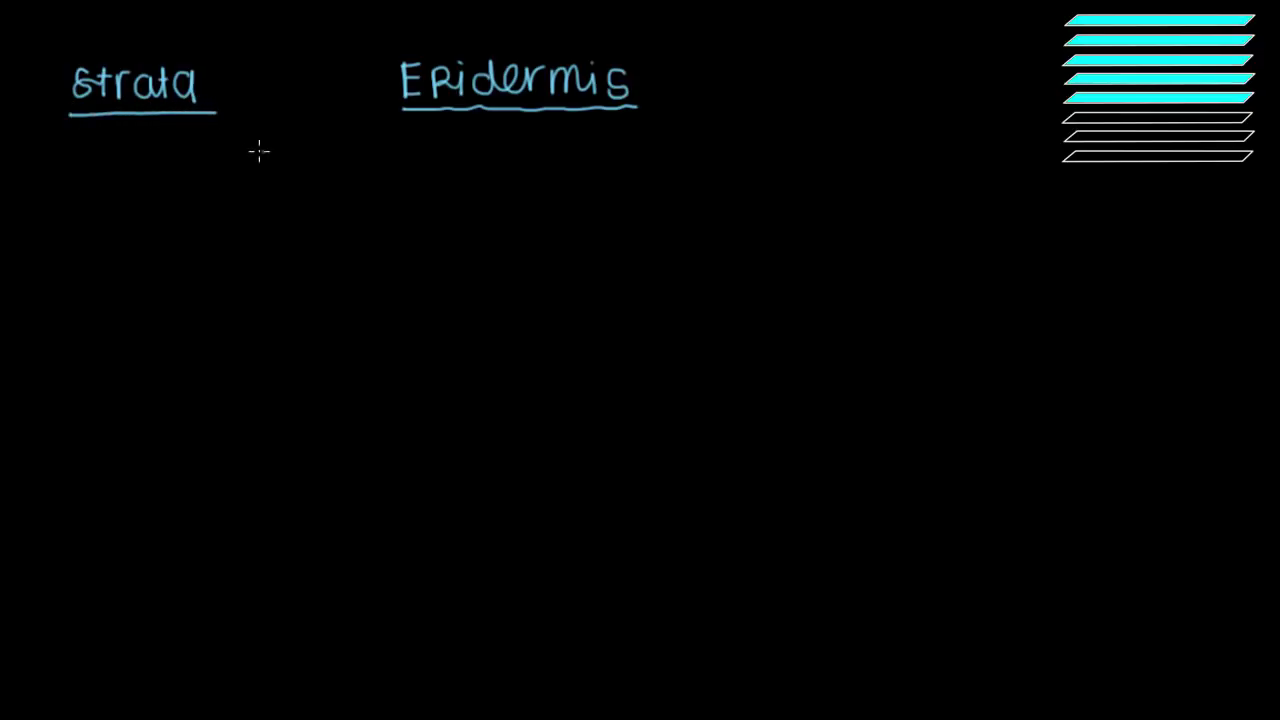 Strata
Epidermis